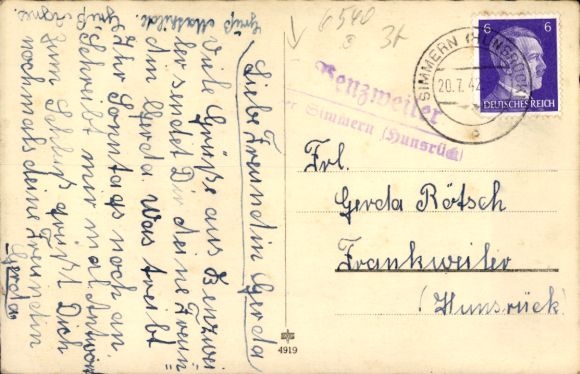 Liebe Freundin Gerda
Viele Grüße aus Benzwei
ler sendet Dir deine Freun
din Gerda Was treibt
Ihr Sonntags noch an.
Schreibt mir mal Antwort
Zum Schluß grüßt Dich
nochmals deine Freundin
Gerda
Gruß Mathilde.
Gruß
6540
3t
Benzweiler
Simmern (Hunsrück)
SIMMERN (HUNSRÜCK)
20.7.42
6 6
DEUTSCHES REICH
Frl.
Gerda Rötsch
Frankweiler
(Hunsrück)
4919